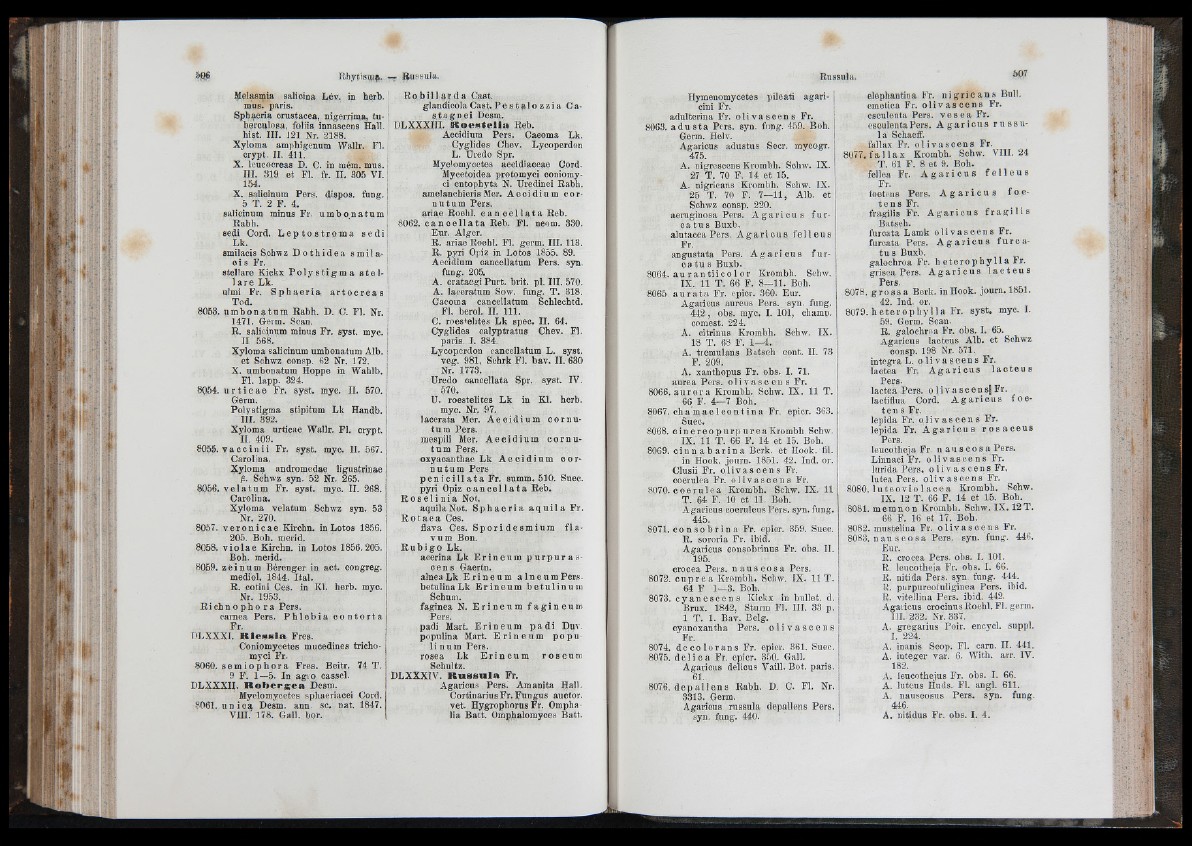 506 Rhytisma. — Russula.
Melasmia salicina Lév. in herb.
mus. paris.
Sphaeria crustacea, nigerrima, tu-
berculosa, foliis innascens Hall.
hist. III. 121 Nr. 2188.
Xyloma amphigenum Wallr. Fl.
crypt. II. 411.
X. leucocreas D. C. in mém. mus.
III. 319 et Fl. fr. II. 305 VI.
154.
X. salicinum Pers. dispos. fung.
5 T. 2 F. 4.
salicinum minus Fr. umbonatum
Rabh.
sedi Cord. Leptostroma sedi
Lk.
smilacis Schwz Dothidea smila-
cis Fr.
stellare Kickx Polystigma stel-
lare Lk.
ulmi Fr. Sphaeria artocreas
Tod.
8053. umbonatum Rabh. D. C. Fl. Nr.
1471. Germ. Scan.
R. salicinum minus Fr. syst. myc.
II 568.
Xyloma salicinum umbonatum Alb.
et Schwz consp. 62 Nr. 172.
X. umbonatum Hoppe in Wahlb.
Fl. lapp. 324.
8054. urticae Fr. syst. myc. II. 570.
Germ.
Polystigma stipitum Lk Handb.
III. 392.
Xyloma urticae Wallr. Fl. crypt.
II. 409.
8055. vaccinii Fr. syst. myc. II. 567.
Carolina.
Xyloma andromedae ligustrinae
β. Schwz syn. 52 Nr. 265.
8056. velatum Fr. syst. myc. II. 268.
Carolina.
Xyloma velatum Schwz syn. 53
Nr. 270.
8057. veronicae Kirchn. in Lotos 1856.
205. Boh. merid.
8058. violae Kirchn. in Lotos 1856. 205.
Boh. merid.
8059. zeinum Bérenger in act. congreg.
mediol. 1844. Ital.
R. cotini Ces. in Kl. herb. myc.
Nr. 1953.
Richnophora Pers.
carnea Pers. Phlebia contorta
Fr.
DLXXXI. Riessia Fres.
Coniomycetes mucedines tricho-
myci Fr.
8060. semiophora Fres. Beitr. 74 T.
9 F. 1—5. In agro cassel.
DLXXXII. Robergea Desm.
Myelomycetes sphaeriacei Cord.
8061. unica Desm. ann sc. nat. 1847.
VIII. 178. Gall. bor.
Robillarda Cast.
glandicola Cast. Pestalozzia Ca-
stagnei Desm.
DLXXXIII. Roestelia Reb.
Aecidium Pers. Caeoma Lk.
Cyglides Chev. Lycoperdon
L. Uredo Spr.
Myelomycetes aecidiaceae Cord.
Mycetoidea protomyci coniomy-
ci entophyta N. Uredinei Rabh.
amelanchieris Mer. Aecidium cor-
nutum Pers.
ariae Roehl. cancellata Reb.
8062. cancellata Reb. Fl. neom. 350.
Eur. Alger.
R. ariae Roehl. Fl. germ. III. 113.
R. pyri Opiz in Lotos 1855. 89.
Aecidium cancellatum Pers. syn.
fung. 205.
A. crataegi Purt. brit. pl. III. 570.
A. laceratum Sow. fung. T. 318.
Caeoma cancellatum Schlechtd.
Fl. berol. II. 111.
C. roestelites Lk spec. II. 64.
Cyglides calyptratus Chev. Fl.
paris I. 384.
Lycoperdon cancellatum L. syst.
veg. 981. Schrk Fl. bav. II. 630
Nr. 1773.
Uredo cancellata Spr. syst. IV.
570.
U. roestelites Lk in Kl. herb.
myc. Nr. 97.
lacerata Mer. Aecidium cornu-
tum Pers.
mespili Mer. Aecidium cornu-
tum Pers.
oxyacanthae Lk Aecidium cor-
nutum Pers
penicillata Fr. summ. 510. Suec.
pyri Opiz cancellata Reb.
Roselinia Not.
aquila Not. Sphaeria aquila Fr.
Rotaea Ces.
flava Ces. Sporidesmium fla-
vum Bon.
Rubigo Lk.
acerina Lk Erineum purpuras-
cens Gaertn.
alnea Lk Erineum alneum Pers.
betulina Lk Erineum betulinum
Schum.
faginea N. Erineum fagineum
Pers.
padi Mart. Erineum padi Duv.
populina Mart. Erineum popu-
linum Pers.
rosea Lk Erineum roseum
Schultz.
DLXXXIV. Russula Fr.
Agaricus Pers. Amanita Hall.
Cortinarius Fr. Fungus auctor.
vet. Hygrophorus Fr. Ompha-
lia Batt. Omphalomyces Batt.
Russula. 507
Hymenomycetes pileati agari-
cini Fr.
adulterina Fr. olivascens Fr.
8063. adusta Pers. syn. fung. 459. Boh.
Germ. Helv.
Agaricus adustus Secr. mycogr.
475.
A. nigrescens Krombh. Schw. IX.
27 T. 70 F. 14 et 15.
A. nigricans Krombh. Schw. IX.
25 T. 70 F. 7—11, Alb. et
Schwz consp. 220.
aeruginosa Pers. Agaricus fur-
catus Buxb.
alutacea Pers. Agaricus felleus
Fr.
angustata Pers. Agaricus fur-
catus Buxb.
8064. aurantiicolor Krombh. Schw.
IX. 11 T. 66 F. 8—11. Boh.
8065 aurata Fr. epicr. 360. Eur.
Agaricus aureus Pers. syn. fung.
442, obs. myc. I. 101, champ.
comest. 224.
A. citrinus Krombh. Schw. IX.
18 T. 68 F. 1—4.
A. tremulans Batsch cont. II. 73
F. 209.
A. xanthopus Fr. obs. I. 71.
aurea Pers. olivascens Fr.
8066. aurora Krombh. Schw. IX. 11 T.
66 F. 4—7 Boh.
8067. chamaeleontina Fr. epicr. 363.
Suec.
8068. cinereopurpurea Krombh Schw.
IX. 11 T. 66 F. 14 et 15. Boh.
8069. cinnabarina Berk. et Hook. fil.
in Hook. journ. 1851. 42. Ind. or.
Clusii Fr. olivascens Fr.
coerulea Fr. olivascens Fr.
8070. coerulea Krombh. Schw. IX. 11
T. 64 F. 10 et 11. Boh.
Agaricus coeruleus Pers. syn. fung.
445.
8071. consobrina Fr. epicr. 359. Suec.
R. sororia Fr. ibid.
Agaricus consobrinus Fr. obs. II.
195.
crocea Pers. nauscosa Pers.
8072. cuprea Krombh. Schw. IX. 11 T.
64 F 1—3. Boh.
8073. cyanescens Kickx in bullet. d.
Brux. 1842, Sturm Fl. III. 33 p.
1 T. 1. Bav. Belg.
cyanoxantha Pers. olivascens
Fr.
8074. decolorans Fr. epicr. 361. Suec.
8075. delica Fr. epicr. 350. Gall.
Agaricus delicus Vaill. Bot. paris.
61.
8076. depallens Rabh. D. C. Fl. Nr.
3313. Germ.
Agaricus russula depallens Pers.
syn. fung. 440.
elephantina Fr. nigricans Bull.
emetica Fr. olivascens Fr.
esculenta Pers. vesca Fr.
esculenta Pers. Agaricus russu-
la Schaeff.
fallax Fr. olivascens Fr.
8077. fallax Krombh. Schw. VIII. 24
T. 61 F. 8 et 9. Boh.
fellea Fr. Agaricus felleus
Fr.
foetens Pers. Agaricus foe-
tens Fr.
fragilis Fr. Agaricus fragilis
Batsch.
furcata Lamk olivascens Fr.
furcata Pers. Agaricus furca-
tus Buxb.
galochroa Fr. heterophylla Fr.
grisea Pers. Agaricus lacteus
Pers.
8078. grossa Berk. in Hook. journ. 1851.
42. Ind. or.
8079. heterophylla Fr. syst. myc. I.
59. Germ. Scan.
R. galochroa Fr. obs. I. 65.
Agaricus lacteus Alb. et Schwz
consp. 198 Nr. 571.
integra L. olivascens Fr.
lactea Fr. Agaricus lacteus
Pers.
lactea Pers. olivascens Fr.
lactiflua Cord. Agaricus foe-
tens Fr.
lepida Fr. olivascens Fr.
lepida Fr. Agaricus rosaceus
Pers.
leucotheja Fr. nauscosa Pers.
Linnaei Fr. olivascens Fr.
lurida Pers. olivascens Fr.
lutea Pers. olivascens Fr.
8080. luteoviolacea Krombh. Schw.
IX. 12 T. 66 F. 14 et 15. Boh.
8081. memnon Krombh. Schw. IX. 12 T.
66 F. 16 et 17. Boh.
8082. mustelina Fr. olivascens Fr.
8083. nauscosa Pers. syn. fung. 446.
Eur.
R. crocea Pers. obs. I. 101.
R. leucotheja Fr. obs. I. 66.
R. nitida Pers. syn. fung. 444.
R. purpureofuliginea Pers. ibid.
R. vitellina Pers. ibid. 442.
Agaricus crocinus Roehl. Fl. germ.
III. 232. Nr. 337.
A. gregarius Poir. encycl. suppl.
I. 224.
A. inanis Scop. Fl. carn. II. 441.
A. integer var. 6. With. arr. IV.
182.
A. leucothejus Fr. obs. I. 66.
A. luteus Huds. Fl. angl. 611.
A. nauseosus Pers. syn. fung.
446.
A. nitidus Fr. obs. I. 4.